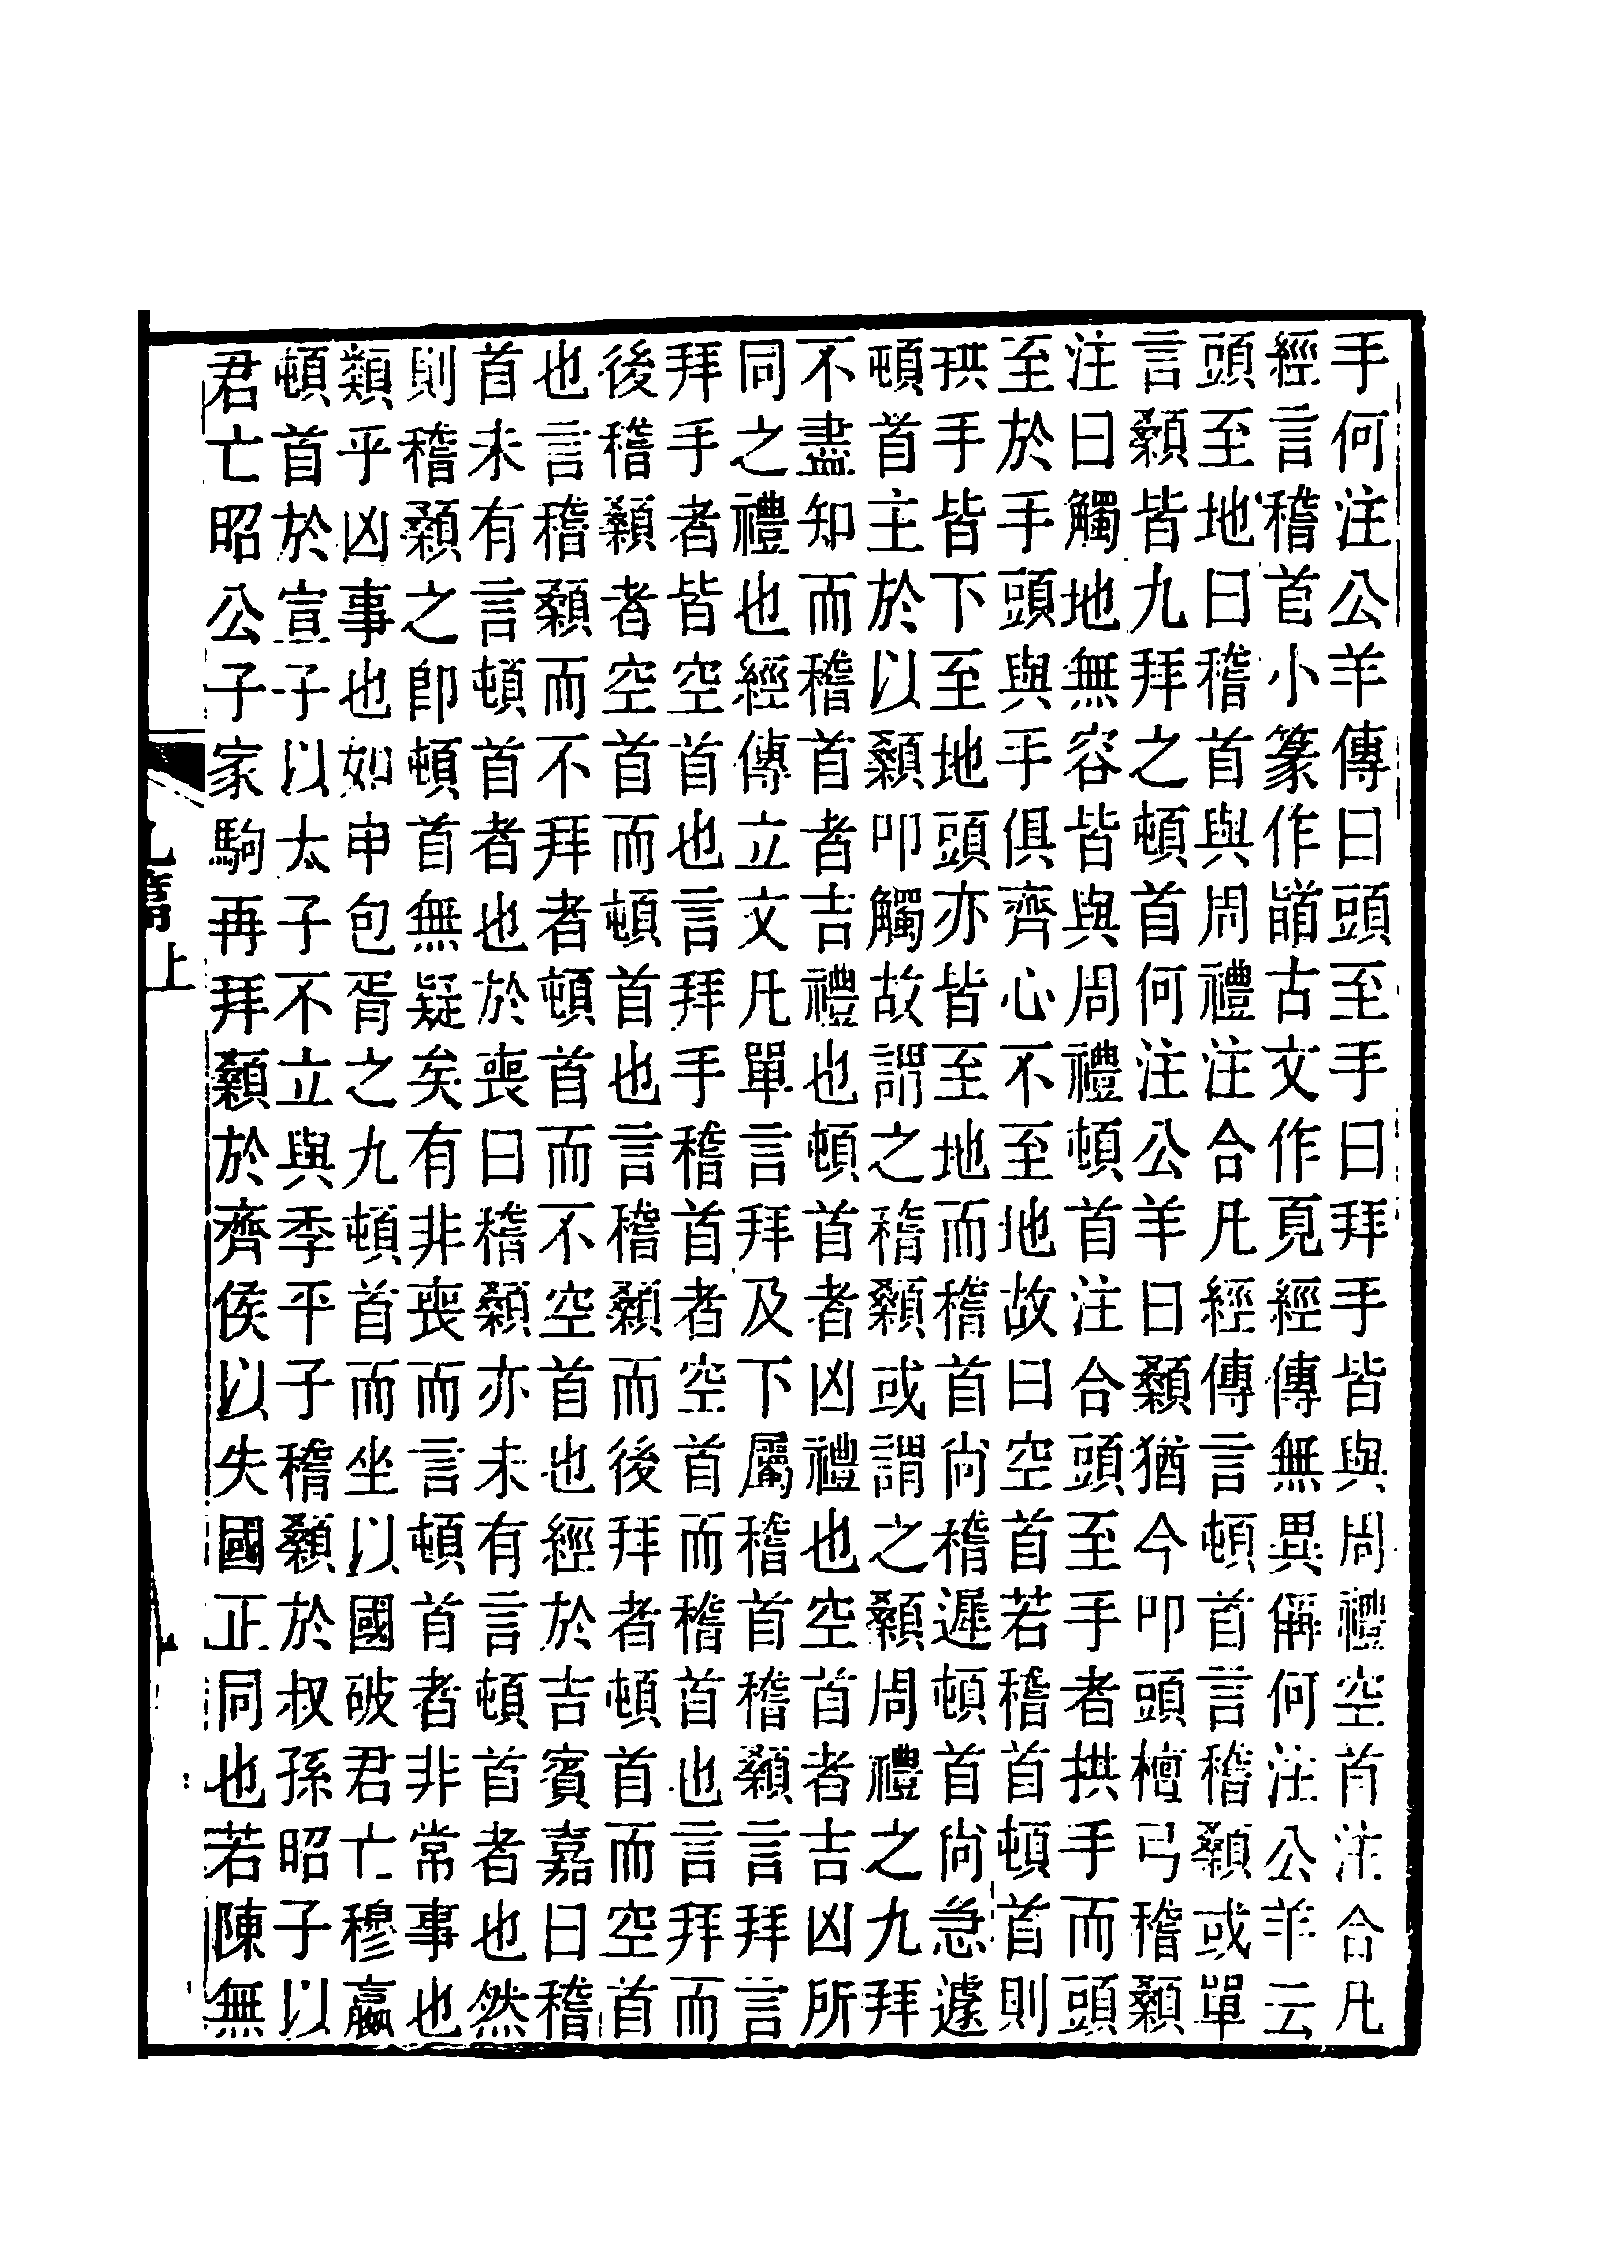 手何注公羊傳曰頭至手曰拜手皆與周禮空首注合凡
經言稽首小篆作䭫古文作𩒨經傳無異偁何注公羊云
頭至地曰稽首與周禮注合凡經傳言頓首言稽顙或單
言顙皆九拜之頓首何注公羊曰顙猶今叩頭檀弓稽顙
注曰觸地無容皆與周禮頓首注合頭至手者拱手而頭
至於手頭與手俱齊心不至地故曰空首若稽首頓首則
拱手皆下至地頭亦皆至地而稽首尚稽遲頓首尚急遽
頓首主於以顙叩觸故謂之稽顙或謂之顙周禮之九拜
不盡知而稽首者吉禮也頓首者凶禮也空首者吉凶所
同之禮也經傳立文凡單言拜及下屬稽首稽顙言拜言
拜手者皆空首也言拜手稽首者空首而稽首也言拜而
後稽顙者空首而頓首也言稽顙而後拜者頓首而空首
也言稽顙而不拜者頓首而不空首也經於吉賓嘉曰稽
首未有言頓首者也於喪曰稽顙亦未有言頓首者也然
則稽顙之卽頓首無疑矣有非喪而言頓首者非常事也
類乎凶事也如申包胥之九頓首而坐以國破君亡穆嬴
頓首於宣子以太子不立與季平子稽顙於叔孫昭子以
君亡昭公子家駒再拜顙於齊侯以失國正同也若陳無
九篇上